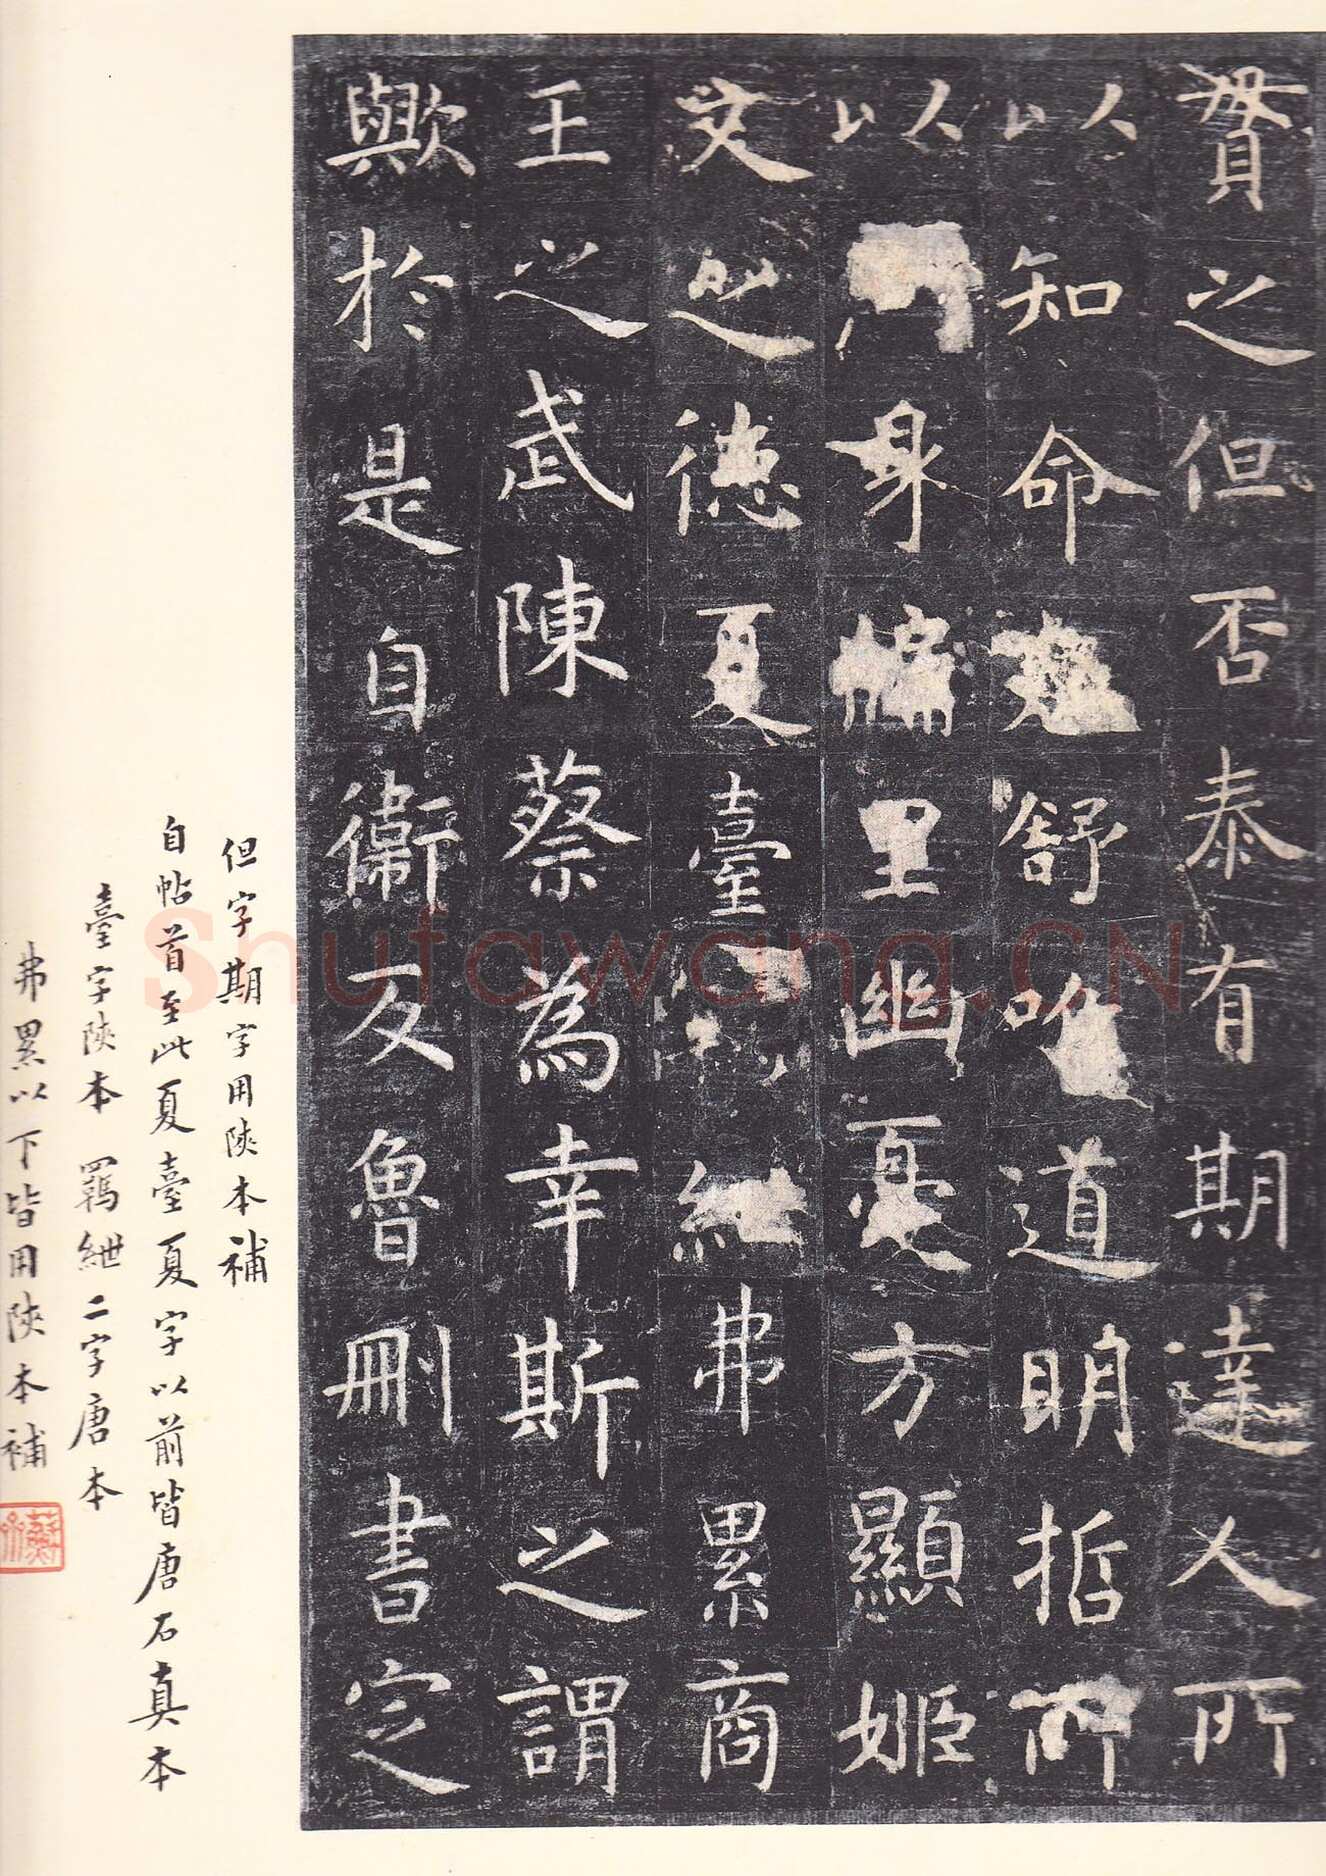 贤之但否泰有期達人所
以知命卷舒唯道明哲所
以周身牖里幽憂方顯姬
文之德夏臺羈绁弗累商
王之武陳蔡為幸斯之謂
歟於是自衛反魯刪書定
但字期字用陝本補
自帖首至此夏臺夏字以前皆唐石真本
臺字陝本羈紲二字唐本
弗累以下皆用陝本補
Shufawang.CN